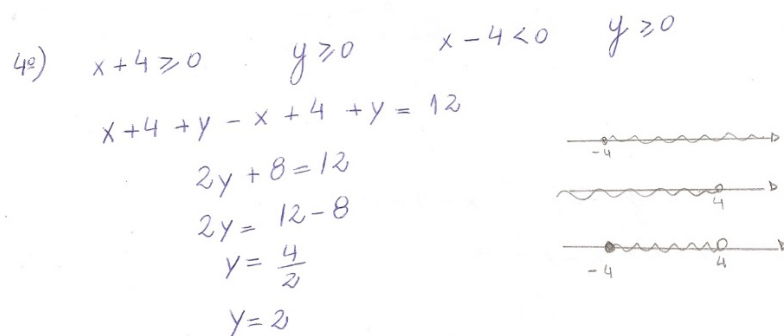 4º) x + 4 ⩾ 0 y ⩾ 0 x - 4 < 0 y ⩾ 0
x + 4 + y - x + 4 + y = 12
2y + 8 = 12
2y = 12 - 8
y = 4/2
y = 2
-4
4
-4 4